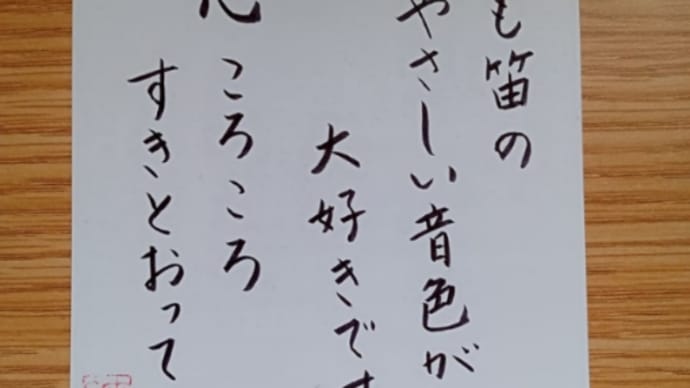 も笛の
やさしい音色が
大好きです
ころころ
すきとおって